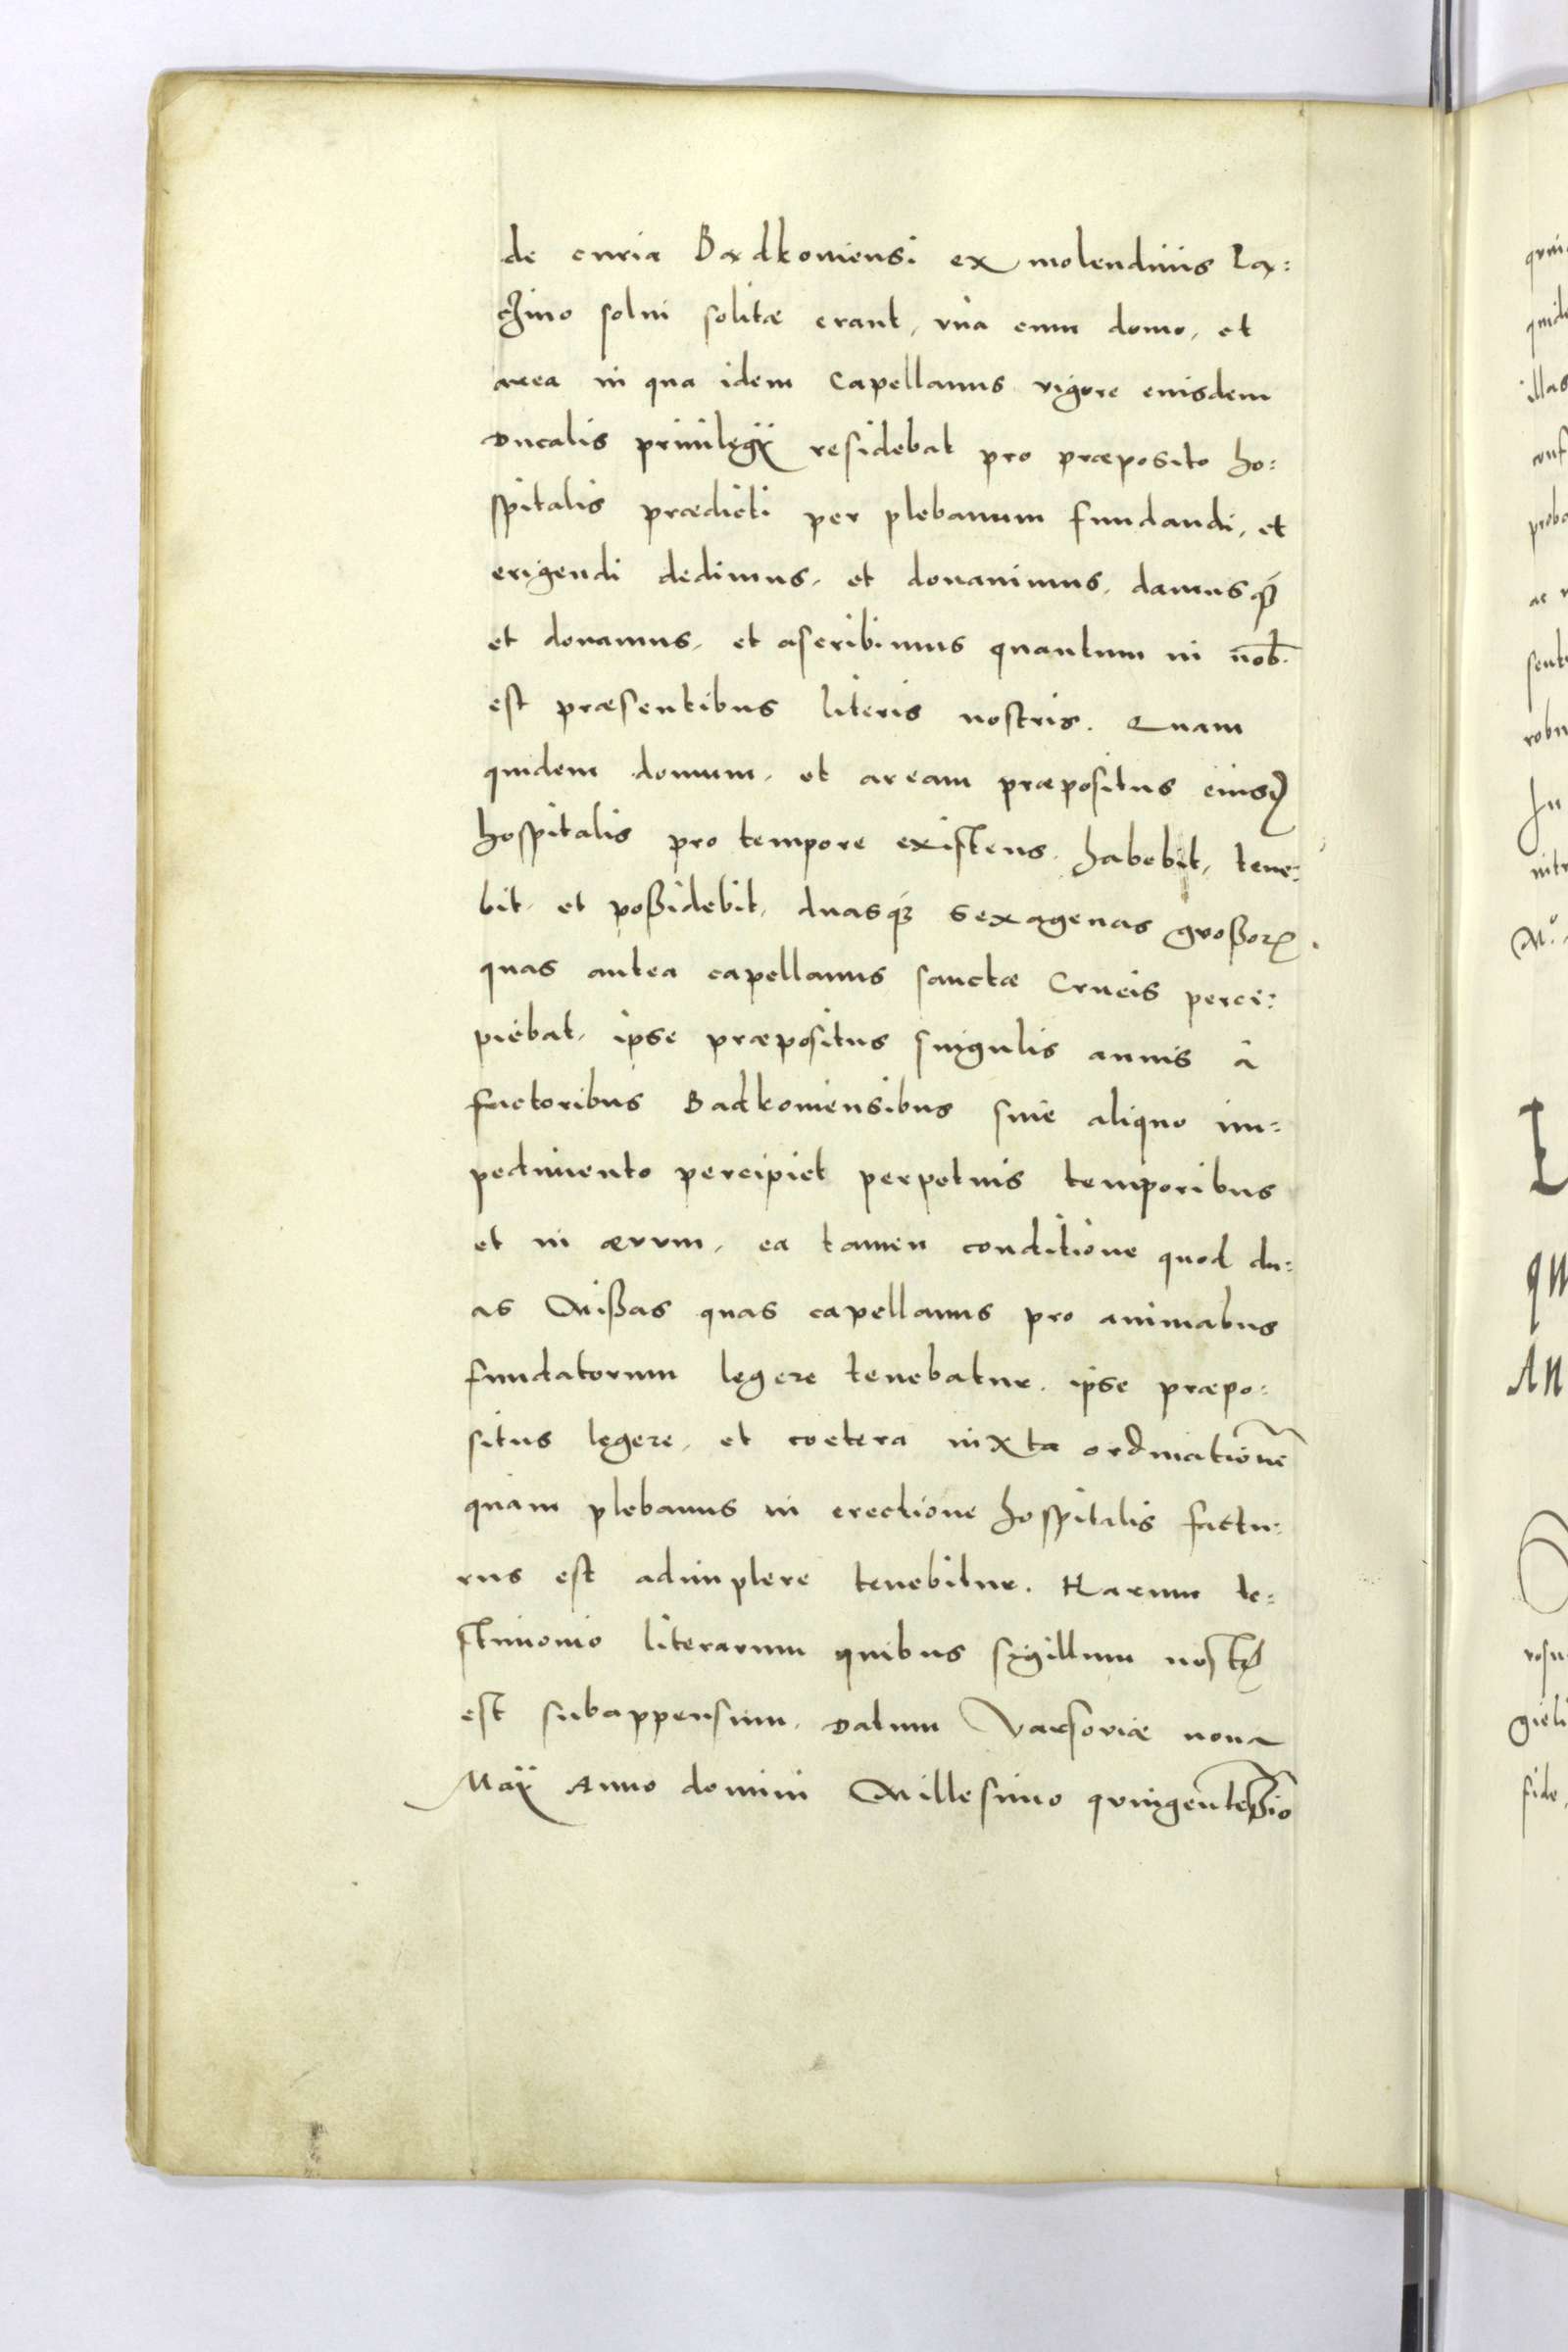 de curia Badkoviensi ex molendinis La=
chino solui solitæ erant, vna cum domo, et
area in qua idem Capellanus vigore euisdem
Ducalis priuilegÿ residebat pro præposito ho=
spitalis prædicti per plebanum fundandi, et
erigendi dedimus, et donauimus, damusq́ꝫ
et donamus, et ascribimus quantum in nob̄.
est præsentibus literis nostris. Quam
quidem domum, et aream præpositus eiusꝺ
hospitalis pro tempore existens habebit, tene=
bit, et poßidebit, duasq́ꝫ sexagenas großorꝝ.
quas antea capellanus sanctæ Crucis perci=
piebat, ipse præpositus singulis annis â
factoribus Badkoviensibus sine aliquo im=
pedimento percipiet perpetuis temporibus
et in ævvm, ea tamen conditione quod du=
as Mißas quas capellanus pro animabus
fundatorum legere tenebatur, ipse præpo=
situs legere, et coetera iuxta ordinationē
quam plebanus in erectione hospitalis factu=
rus est adimplere tenebitur. Harum te=
stimonio literarum quibus sigillum nostꝝ
est subappensum. Datum Varsoviæ nona
Maÿ Anno domini Millesimo qvingentesīo
qvin
quid
illas
conf
proba
ac
sent
robu
In
nitr
Mº.
L
qu
An
rosu
gieli
fide,